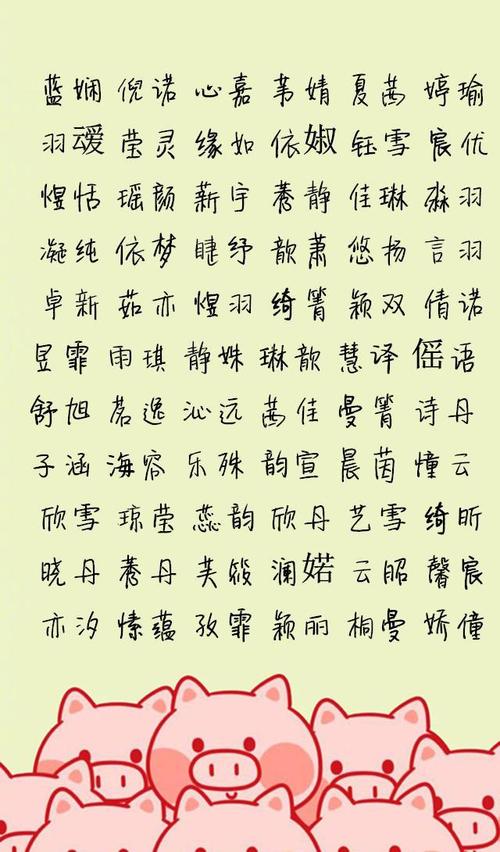 蓝娴 倪诺 心嘉 苇婧 夏茜 婷瑜
羽叆 莹灵 缘如 依婌 钰雪 宸优
煜恬 瑶颜 薪宇 蕎静 佳琳 淼羽
凝纯 依梦 睫纾 歆萧 悠扬 言羽
卓新 茹亦 煜羽 绮箐 颖双 倩诺
昱霏 雨琪 静姝 琳歆 慧译 傜语
舒旭 茗逸 沁远 茜佳 曼箐 诗丹
子涵 海容 乐殊 韵宣 晨茵 憧云
欣雪 琼莹 蕊韵 欣丹 艺雪 绮昕
晓丹 丹 芙筱 澜婼 云昭 馨宸
亦汐 愫蕴 孜霏 颖丽 桐曼 娇僮